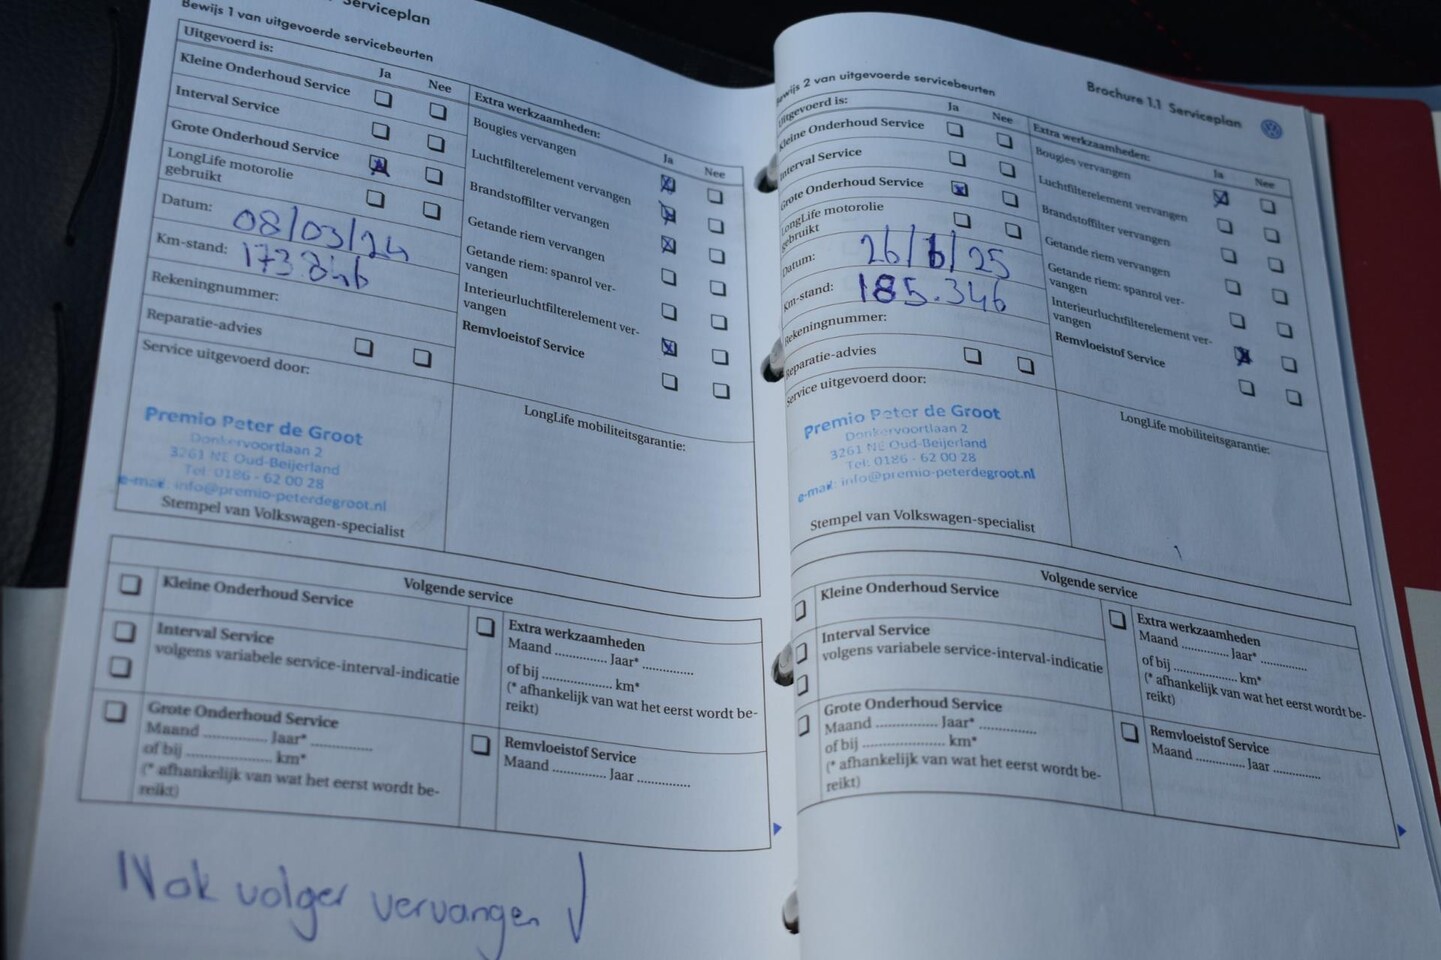 Serviceplan
Bewijs 1 van uitgevoerde servicebeurten
Uitgevoerd is:
Ja
Nee
Kleine Onderhoud Service
Interval Service
Grote Onderhoud Service
LongLife motorolie
gebruikt
Datum: 08/03/24
Km-stand: 173 846
Rekeningnummer:
Reparatie-advies
Service uitgevoerd door:
Premio Peter de Groot
Donkervoortlaan 2
3261 NE Oud-Beijerland
Tel: 0186 - 62 00 28
e-mail: info@premio-peterdegroot.nl
Stempel van Volkswagen-specialist
Extra werkzaamheden:
Ja
Nee
Bougies vervangen
Luchtfilterelement vervangen
Brandstoffilter vervangen
Getande riem vervangen
Getande riem: spanrol ver-
vangen
Interieurluchtfilterelement ver-
vangen
Remvloeistof Service
LongLife mobiliteitsgarantie:
Volgende service
Kleine Onderhoud Service
Interval Service
volgens variabele service-interval-indicatie
Grote Onderhoud Service
Maand .............. Jaar* .............
of bij .................... km*
(* afhankelijk van wat het eerst wordt be-
reikt)
Extra werkzaamheden
Maand ............. Jaar* .............
of bij .................. km*
(* afhankelijk van wat het eerst wordt be-
reikt)
Remvloeistof Service
Maand ............. Jaar .............
Nok volger vervangen
Brochure 1.1 Serviceplan
Bewijs 2 van uitgevoerde servicebeurten
Uitgevoerd is:
Ja
Nee
Kleine Onderhoud Service
Interval Service
Grote Onderhoud Service
LongLife motorolie
gebruikt
Datum: 26/6/25
Km-stand: 185.346
Rekeningnummer:
Reparatie-advies
Service uitgevoerd door:
Premio Peter de Groot
Donkervoortlaan 2
3261 NE Oud-Beijerland
Tel: 0186 - 62 00 28
e-mail: info@premio-peterdegroot.nl
Stempel van Volkswagen-specialist
Extra werkzaamheden:
Ja
Nee
Bougies vervangen
Luchtfilterelement vervangen
Brandstoffilter vervangen
Getande riem vervangen
Getande riem: spanrol ver-
vangen
Interieurluchtfilterelement ver-
vangen
Remvloeistof Service
LongLife mobiliteitsgarantie:
Volgende service
Kleine Onderhoud Service
Interval Service
volgens variabele service-interval-indicatie
Grote Onderhoud Service
Maand .............. Jaar* .............
of bij .................... km*
(* afhankelijk van wat het eerst wordt be-
reikt)
Extra werkzaamheden
Maand ............. Jaar* .............
of bij .................. km*
(* afhankelijk van wat het eerst wordt be-
reikt)
Remvloeistof Service
Maand ............. Jaar .............